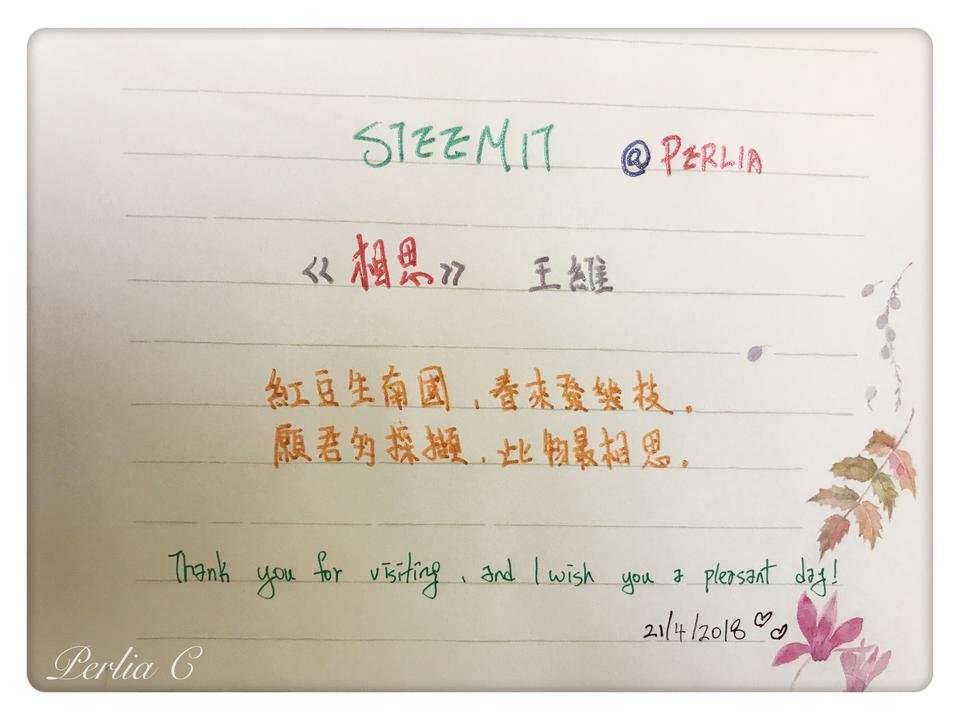 STEEMIT @PERLIA
<<相思>> 王維
紅豆生南國，春來發幾枝。
願君多採擷，此物最相思。
Thank you for visiting, and I wish you a pleasant day!
21/4/2018
Perlia C